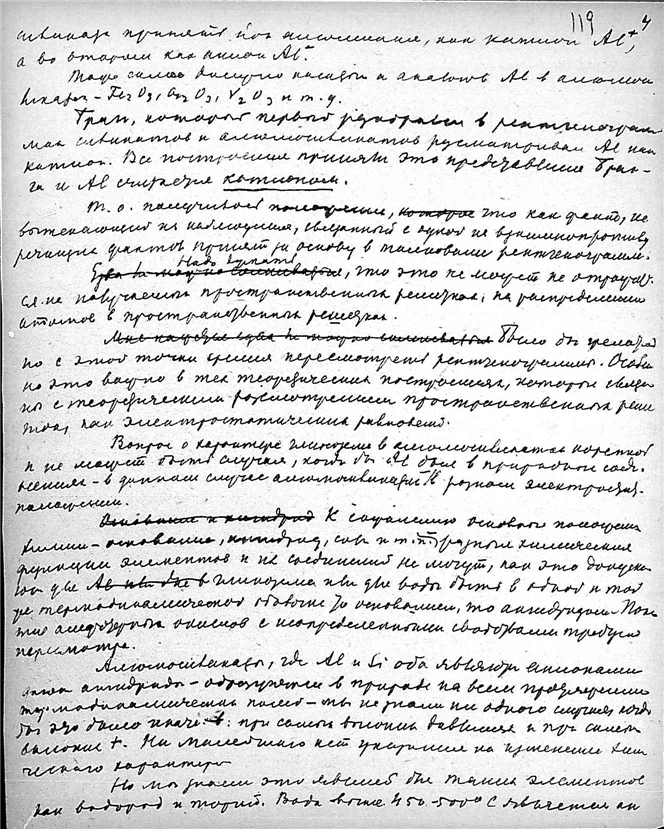 119 4
силиката принять для алюминия, как катион Al⁺,
а во втором как анион Al⁻.
Тоже самое касается аналогов Al в алюмоси-
ликатах - Fe₂O₃, Cr₂O₃, V₂O₃ и т. д.
Брэгг, который первый в рентгенограм-
мах силикатов и алюмосиликатов рассматривал Al как
катион. Все построения приняли это представление Брэг-
га и Al считается катионом.
Т. о. получилось положение, которое что как факт, не
вытекающий из наблюдения, связанный с одной из взаимнопротиво-
речащих фактов принят за основу в толковании рентгенограмм.
Надо думать, что это не может не отразить-
ся на получаемых пространственных решетках, на распределении
атомов в пространственных решетках.
Мне кажется едва ли можно сомневаться Было бы желатель-
но с этой точки зрения пересмотреть рентгенограммы. Особен-
но это важно в тех теоретических построениях, которые связа-
ны с теоретическим рассмотрением пространственных реше-
ток, как электростатических равновесий.
Вопрос о характере глинозема в алюмосиликатах коренной
и не может быть случая, когда бы Al был в природном соеди-
нении - в данном случае алюмосиликаты в разном электрохим.
положении.
К сожалению основное положение
химии - основание, ангидрид, соль и т. п. разные химические
функции элементов и их соединений не могут, как это допуска-
ют для глинозема или для воды быть в одной и той
же термодинамической обстановке то основанием, то ангидридом. Поня-
тие амфотерных окислов с неопределенными свойствами требует
пересмотра.
Алюмосиликаты, где Al и Si оба являются анионами
ангидриды - образуются в природе на всем протяжении
термодинамических полей - мы не знаем ни одного случая когда
бы это было иначе: при самом высоком давлении и при самой
высокой t. Ни малейшего нет указания на изменение хими-
ческого характера
Но мы знаем это явление для таких элементов
как водород и торий. Вода выше 450-500° C является ан